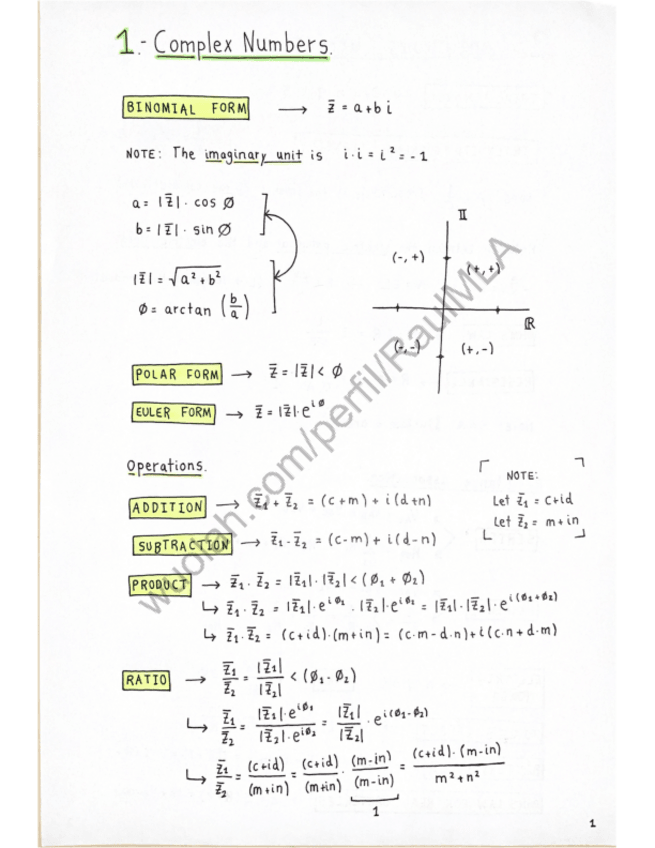 1.- Complex Numbers.
BINOMIAL FORM ⟶ z̄ = a+b i
NOTE: The imaginary unit is i·i = i² = -1
a = |z̄| · cos Ø
b = |z̄| · sin Ø
|z̄| = √(a²+b²)
Ø = arctan (b/a)
II
(-,+) (+,+)
ℝ
(-,-) (+,-)
POLAR FORM → z̄ = |z̄| < Ø
EULER FORM → z̄ = |z̄|·e^iØ
Operations.
NOTE:
Let z̄₁ = c+id
Let z̄₂ = m+in
ADDITION → z̄₁ + z̄₂ = (c+m) + i(d+n)
SUBTRACTION → z̄₁ - z̄₂ = (c-m) + i(d-n)
PRODUCT → z̄₁ · z̄₂ = |z̄₁|·|z̄₂| < (Ø₁ + Ø₂)
↳ z̄₁ · z̄₂ = |z̄₁|·e^iØ₁ · |z̄₂|·e^iØ₂ = |z̄₁|·|z̄₂|·e^i(Ø₁+Ø₂)
↳ z̄₁ · z̄₂ = (c+id)·(m+in) = (c·m - d·n)+i(c·n+d·m)
RATIO → z̄₁/z̄₂ = |z̄₁|/|z̄₂| < (Ø₁-Ø₂)
↳ z̄₁/z̄₂ = |z̄₁|·e^iØ₁/|z̄₂|·e^iØ₂ = |z̄₁|/|z̄₂| · e^i(Ø₁-Ø₂)
↳ z̄₁/z̄₂ = (c+id)/(m+in) = (c+id)/(m+in) · (m-in)/(m-in) = (c+id)·(m-in)/m²+n²
1
1
wuolah.com/perfil/RaulMLA